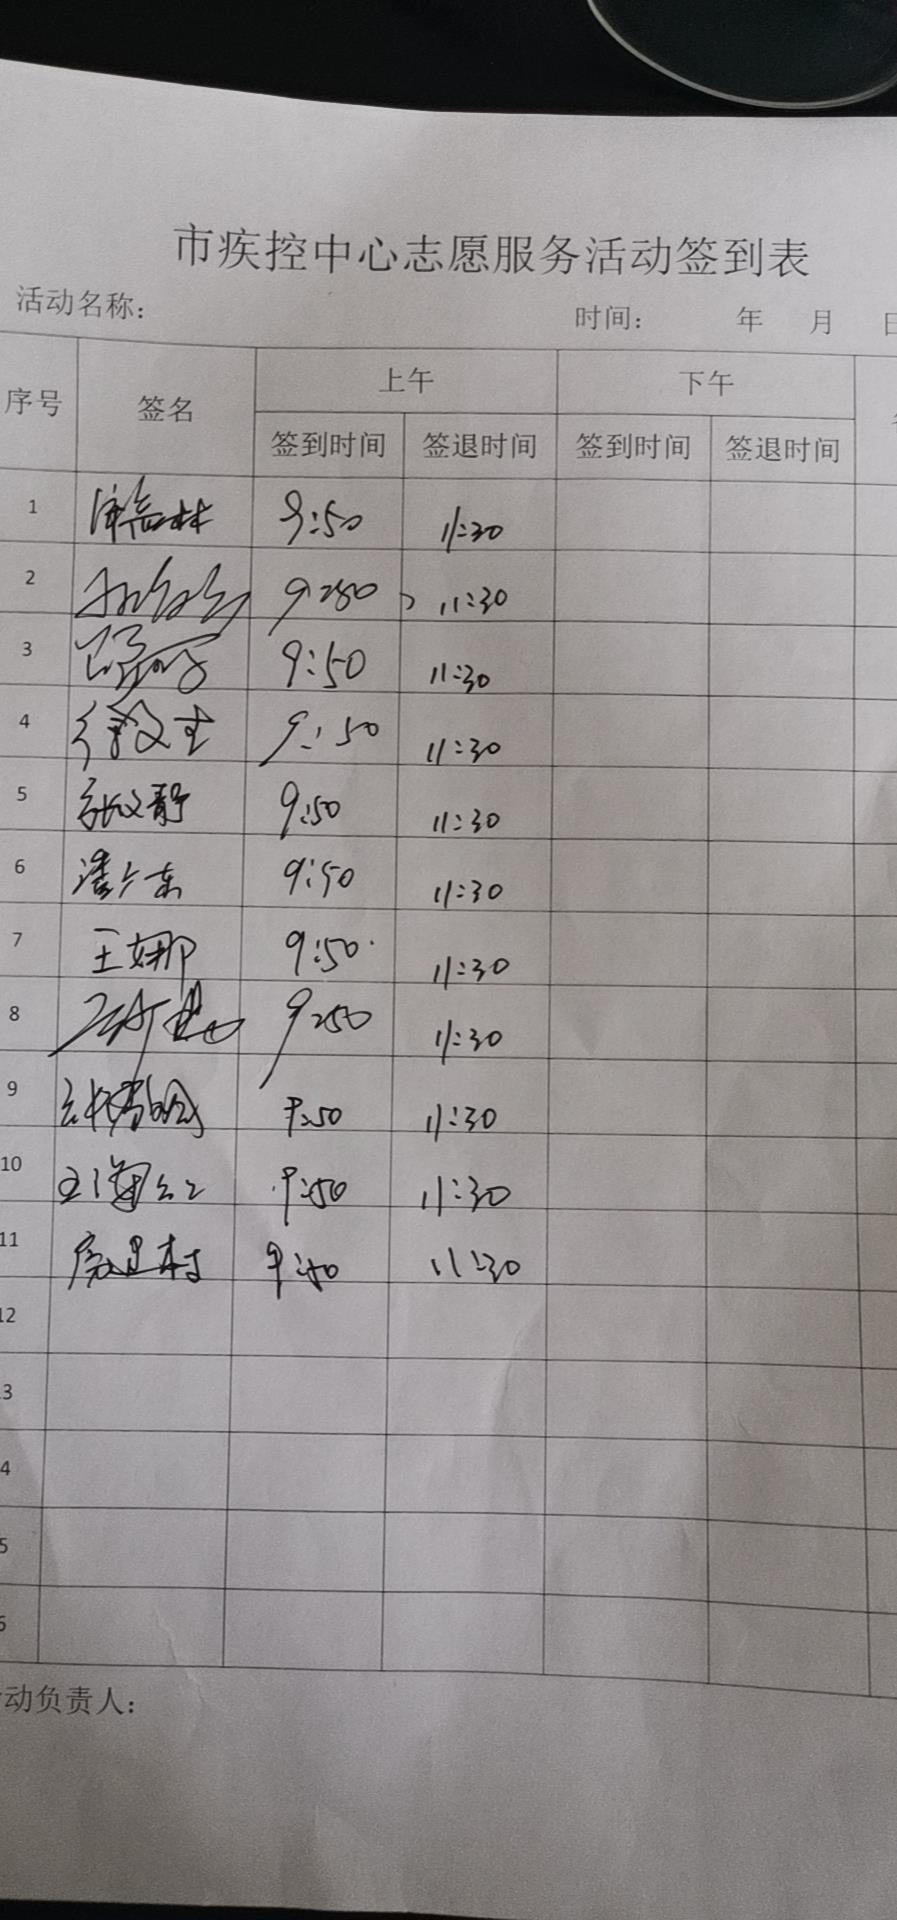 市疾控中心志愿服务活动签到表
活动名称： 时间： 年 月 日
序号 签名 上午 下午
签到时间 签退时间 签到时间 签退时间
1 9:50 11:30
2 9:50 11:30
3 9:50 11:30
4 徐文士 9:50 11:30
5 张文静 9:50 11:30
6 潘广东 9:50 11:30
7 王娜 9:50 11:30
8 9:50 11:30
9 9:50 11:30
10 王海红 9:50 11:30
11 9:50 11:30
12
3
4
5
6
动负责人：